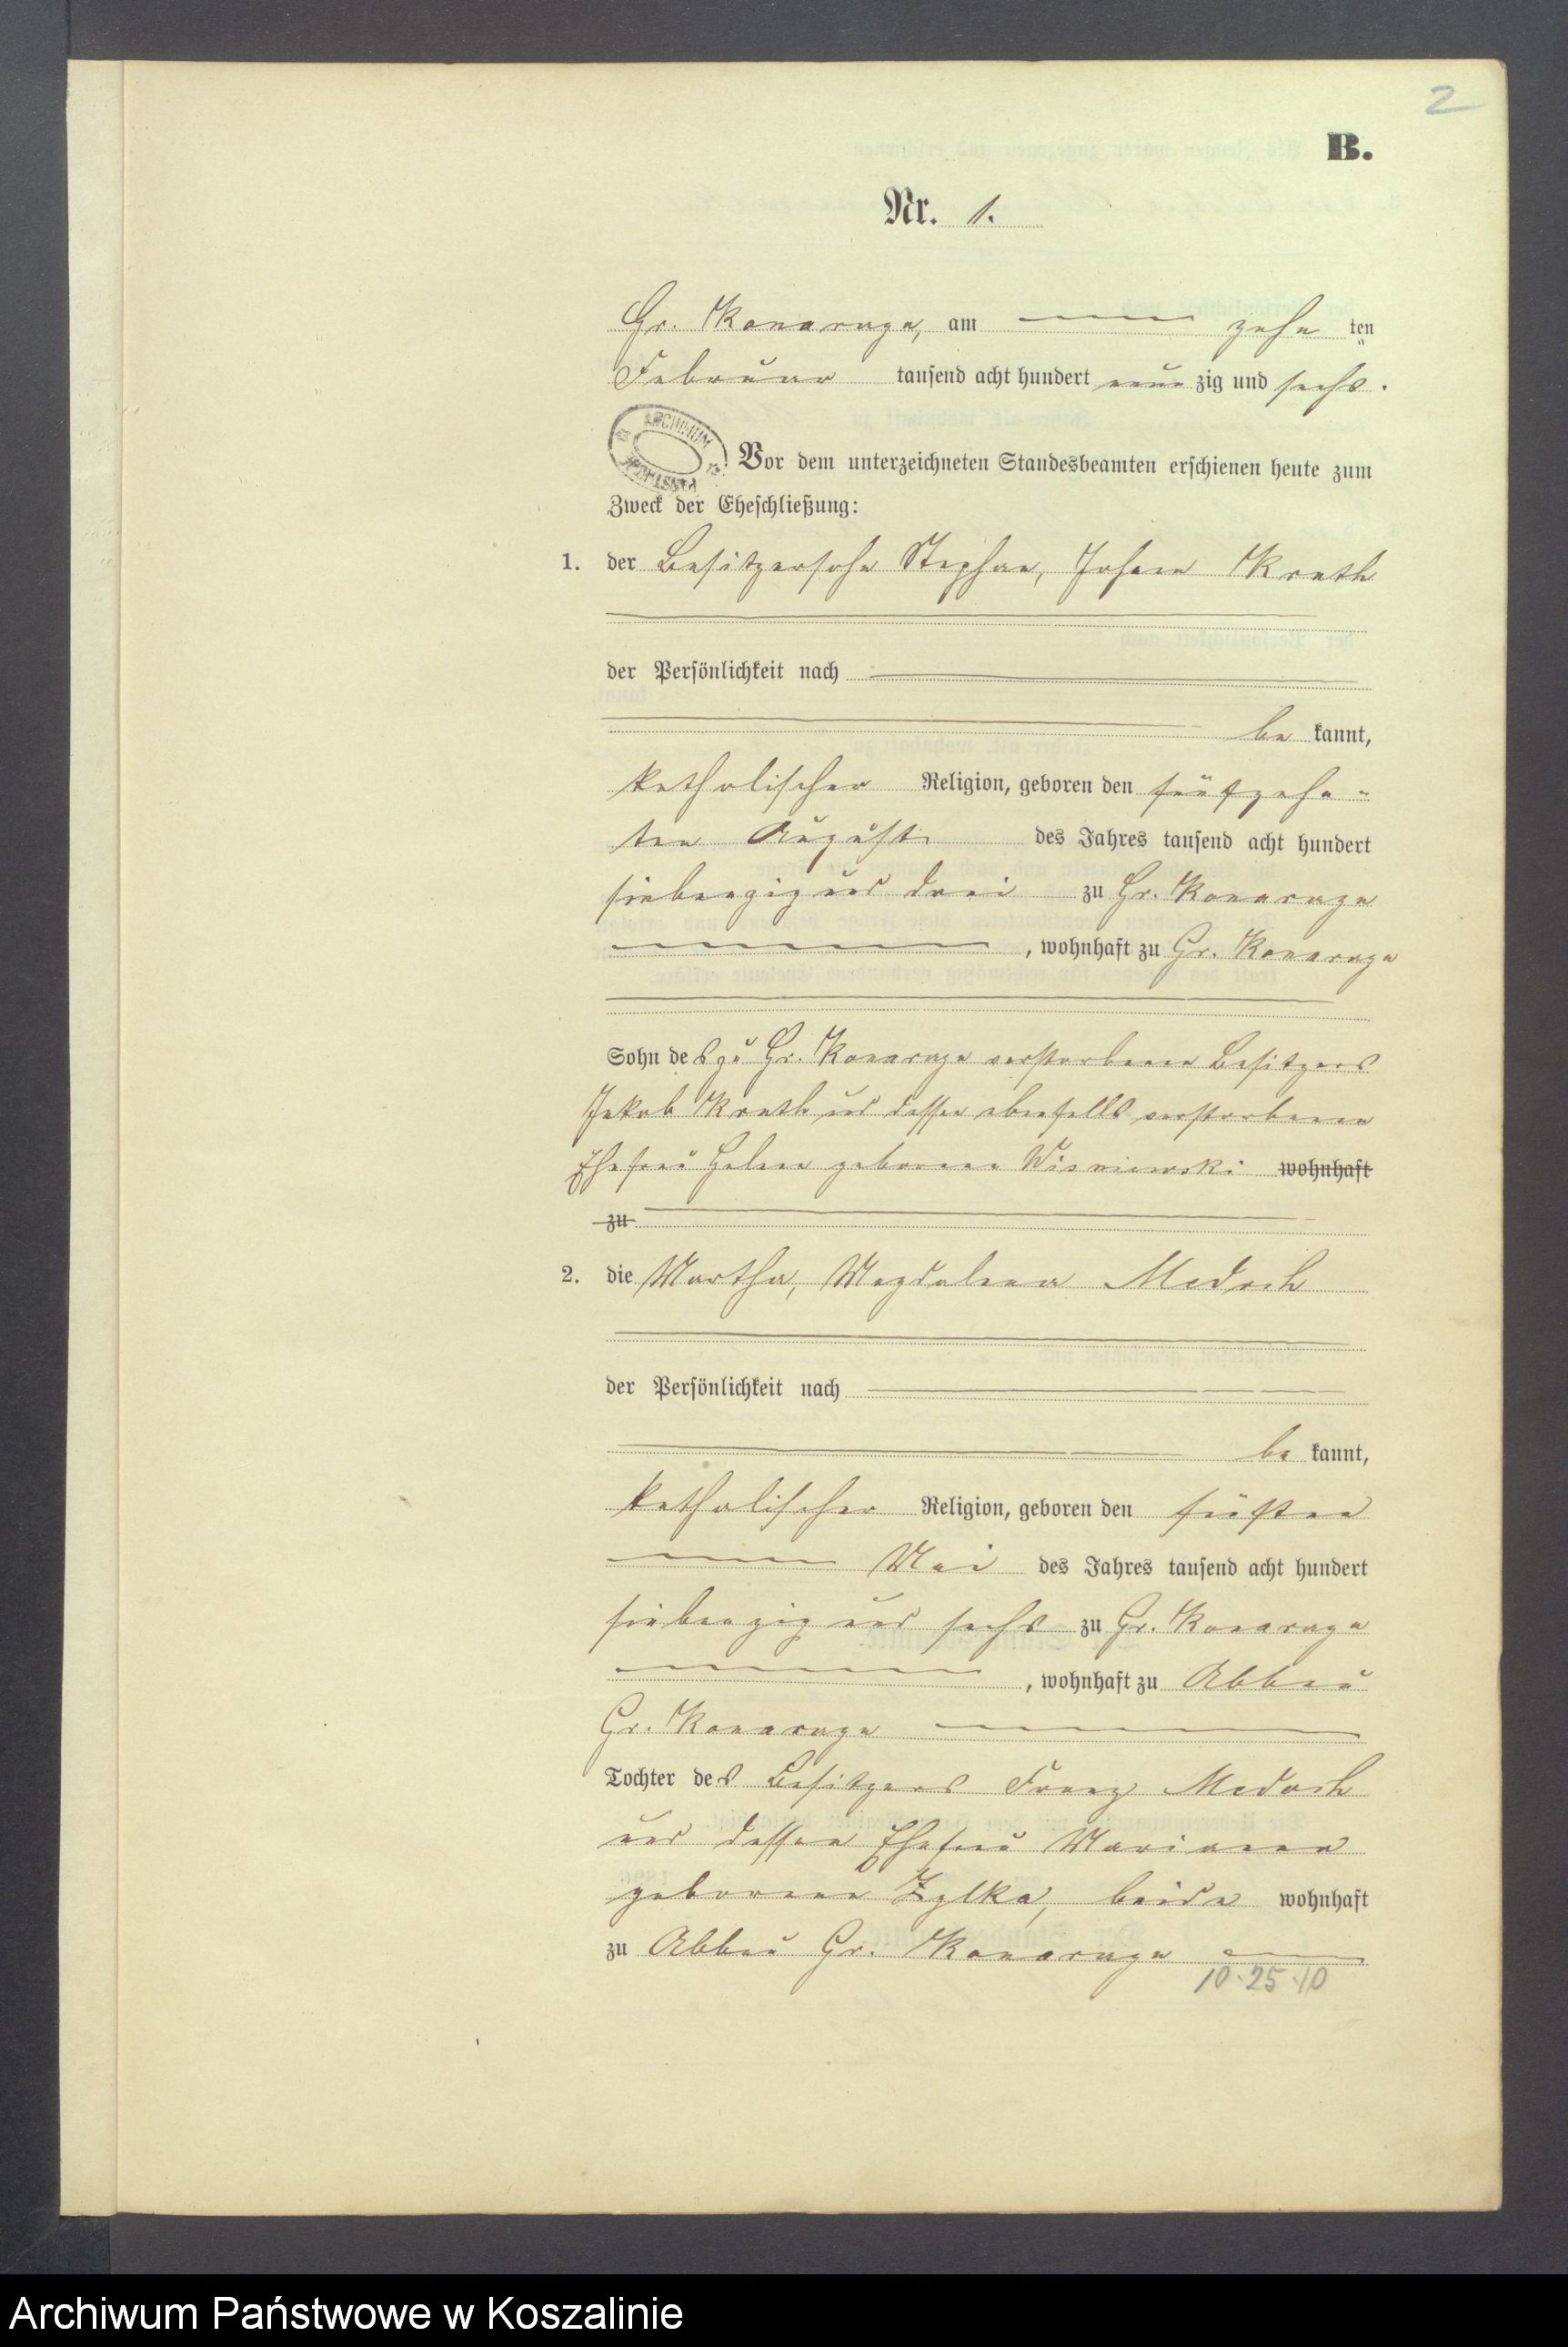 2
B.
Nr. 1.
Gr. Konarzyn, am zehn ten
Februar tausend acht hundert neun zig und sechs.
ARCHIWUM
Vor dem unterzeichneten Standesbeamten erschienen heute zum
Zweck der Eheschließung:
1. der Besitzersohn Stephan, Johann Knuth
der Persönlichkeit nach
be kannt,
katholischer Religion, geboren den fünfzehn-
ten August des Jahres tausend acht hundert
siebenzig und drei zu Gr. Konarzyn
, wohnhaft zu Gr. Konarzyn
Sohn des zu Gr. Konarzyn verstorbenen Besitzers
Jakob Knuth und dessen ebenfalls verstorbenen
Ehefrau Helene geborene Wisniewski wohnhaft
zu
2. die Martha, Magdalena
der Persönlichkeit nach
be kannt,
katholischer Religion, geboren den fünften
Mai des Jahres tausend acht hundert
siebenzig und sechs zu Gr. Konarzyn
, wohnhaft zu Abbau
Gr. Konarzyn
Tochter des Besitzers Franz
und dessen Ehefrau Marianna
geborene Zylka, beide wohnhaft
zu Abbau Gr. Konarzyn
10.25.10
Archiwum Państwowe w Koszalinie